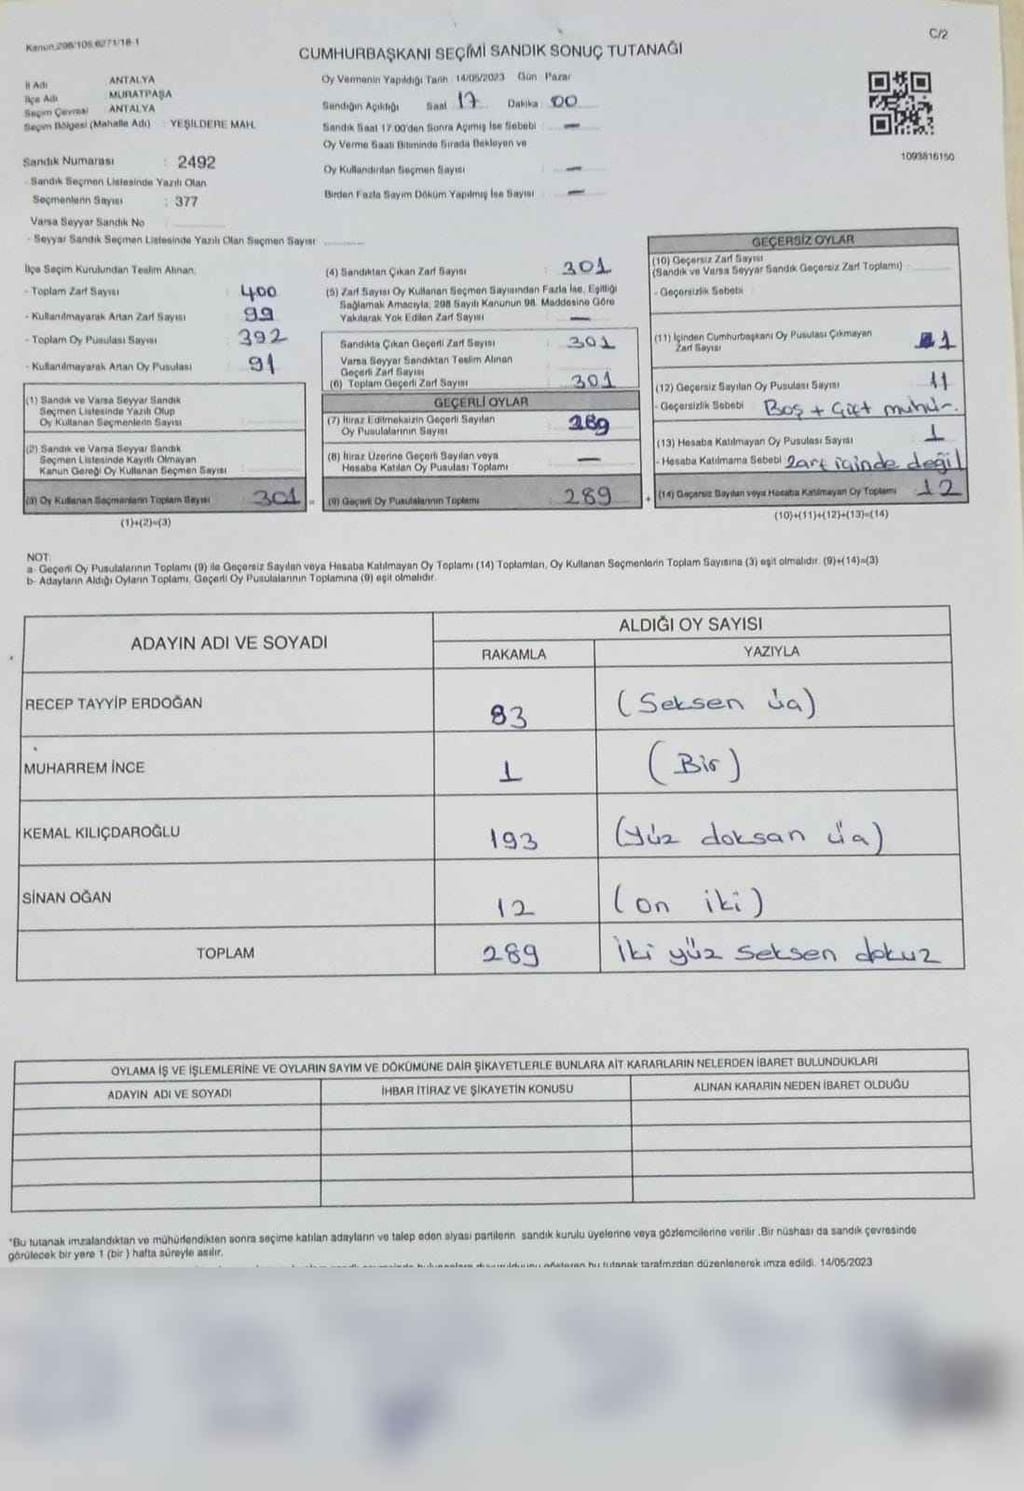 Kanun.298/105,6271/18-1
C/2
CUMHURBAŞKANI SEÇİMİ SANDIK SONUÇ TUTANAĞI
İl Adı ANTALYA
İlçe Adı MURATPAŞA
Seçim Çevresi ANTALYA
Seçim Bölgesi (Mahalle Adı) : YEŞİLDERE MAH.
Sandık Numarası : 2492
- Sandık Seçmen Listesinde Yazılı Olan
Seçmenlerin Sayısı : 377
Varsa Seyyar Sandık No
- Seyyar Sandık Seçmen Listesinde Yazılı Olan Seçmen Sayısı
Oy Vermenin Yapıldığı Tarih : 14/05/2023 Gün Pazar
Sandığın Açıldığı Saat 17 Dakika 00
Sandık Saat 17.00'den Sonra Açılmış İse Sebebi : —
Oy Verme Saati Bitiminde Sırada Bekleyen ve
Oy Kullandırılan Seçmen Sayısı : —
Birden Fazla Sayım Döküm Yapılmış İse Sayısı : —
1093816150
İlçe Seçim Kurulundan Teslim Alınan;
- Toplam Zarf Sayısı : 400
- Kullanılmayarak Artan Zarf Sayısı : 99
- Toplam Oy Pusulası Sayısı : 392
- Kullanılmayarak Artan Oy Pusulası : 91
(1) Sandık ve Varsa Seyyar Sandık
Seçmen Listesinde Yazılı Olup
Oy Kullanan Seçmenlerin Sayısı
(2) Sandık ve Varsa Seyyar Sandık
Seçmen Listesinde Kayıtlı Olmayan
Kanun Gereği Oy Kullanan Seçmen Sayısı
(3) Oy Kullanan Seçmenlerin Toplam Sayısı 301 =
(1)+(2)=(3)
(4) Sandıktan Çıkan Zarf Sayısı : 301
(5) Zarf Sayısı Oy Kullanan Seçmen Sayısından Fazla İse, Eşitliği
Sağlamak Amacıyla, 298 Sayılı Kanunun 98. Maddesine Göre
Yakılarak Yok Edilen Zarf Sayısı —
Sandıkta Çıkan Geçerli Zarf Sayısı : 301
Varsa Seyyar Sandıktan Teslim Alınan
Geçerli Zarf Sayısı
(6) Toplam Geçerli Zarf Sayısı 301
GEÇERLİ OYLAR
(7) İtiraz Edilmeksizin Geçerli Sayılan
Oy Pusulalarının Sayısı 289
(8) İtiraz Üzerine Geçerli Sayılan veya
Hesaba Katılan Oy Pusulası Toplamı —
(9) Geçerli Oy Pusulalarının Toplamı 289 +
GEÇERSİZ OYLAR
(10) Geçersiz Zarf Sayısı
(Sandık ve Varsa Seyyar Sandık Geçersiz Zarf Toplamı) :
- Geçersizlik Sebebi :
(11) İçinden Cumhurbaşkanı Oy Pusulası Çıkmayan
Zarf Sayısı 1
(12) Geçersiz Sayılan Oy Pusulası Sayısı 11
- Geçersizlik Sebebi Boş + Çift mühür.
(13) Hesaba Katılmayan Oy Pusulası Sayısı 1
- Hesaba Katılmama Sebebi zarf içinde değil
(14) Geçersiz Sayılan veya Hesaba Katılmayan Oy Toplamı 12
(10)+(11)+(12)+(13)=(14)
NOT:
a- Geçerli Oy Pusulalarının Toplamı (9) ile Geçersiz Sayılan veya Hesaba Katılmayan Oy Toplamı (14) Toplamları, Oy Kullanan Seçmenlerin Toplam Sayısına (3) eşit olmalıdır. (9)+(14)=(3)
b- Adayların Aldığı Oyların Toplamı, Geçerli Oy Pusulalarının Toplamına (9) eşit olmalıdır.
ADAYIN ADI VE SOYADI
ALDIĞI OY SAYISI
RAKAMLA YAZIYLA
RECEP TAYYİP ERDOĞAN 83 (Seksen üç)
MUHARREM İNCE 1 (Bir)
KEMAL KILIÇDAROĞLU 193 (yüz doksan üç)
SİNAN OĞAN 12 (on iki)
TOPLAM 289 İki yüz seksen dokuz
OYLAMA İŞ VE İŞLEMLERİNE VE OYLARIN SAYIM VE DÖKÜMÜNE DAİR ŞİKAYETLERLE BUNLARA AİT KARARLARIN NELERDEN İBARET BULUNDUKLARI
ADAYIN ADI VE SOYADI İHBAR İTİRAZ VE ŞİKAYETİN KONUSU ALINAN KARARIN NEDEN İBARET OLDUĞU
*Bu tutanak imzalandıktan ve mühürlendikten sonra seçime katılan adayların ve talep eden siyasi partilerin sandık kurulu üyelerine veya gözlemcilerine verilir .Bir nüshası da sandık çevresinde
görülecek bir yere 1 (bir ) hafta süreyle asılır.
bu tutanak tarafımızdan düzenlenerek imza edildi. 14/05/2023